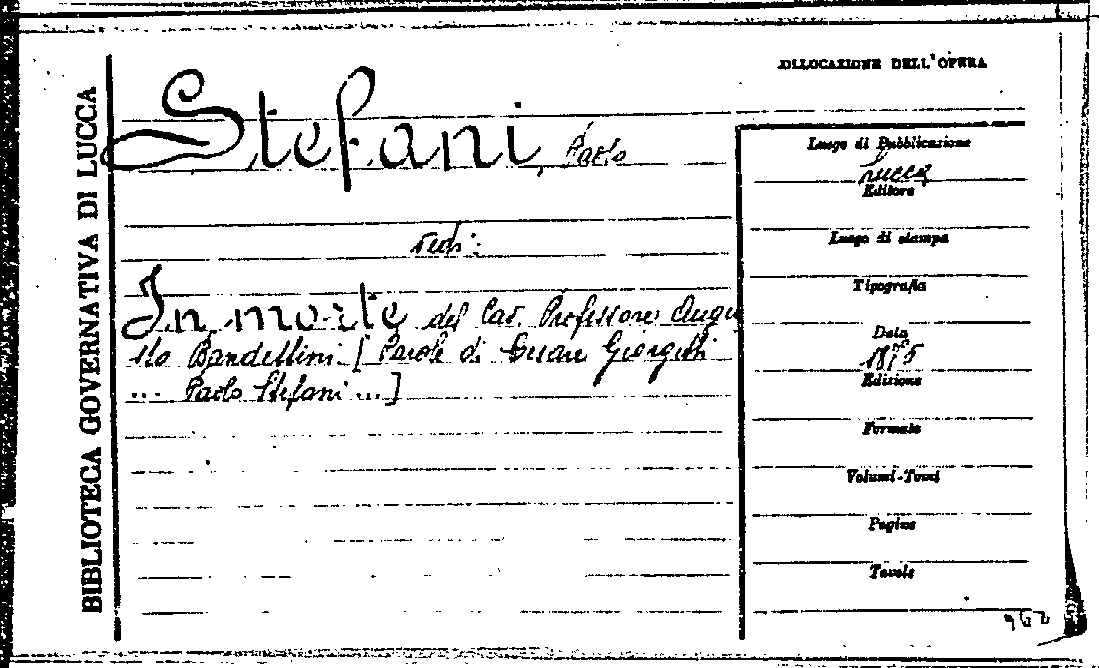 BIBLIOTECA GOVERNATIVA DI LUCCA
OLLOCAZIONE DELL'OPERA
Stefani, Paolo
vedi:
In morte del Cav. Professore Augu
sto Bandettini [Parole di Cesare Giorgetti
... Paolo Stefani ...]
Luogo di Pubblicazione
Lucca
Editore
Luogo di stampa
Tipografia
Data
1875
Edizione
Formato
Volumi-Tomi
Pagine
Tavole